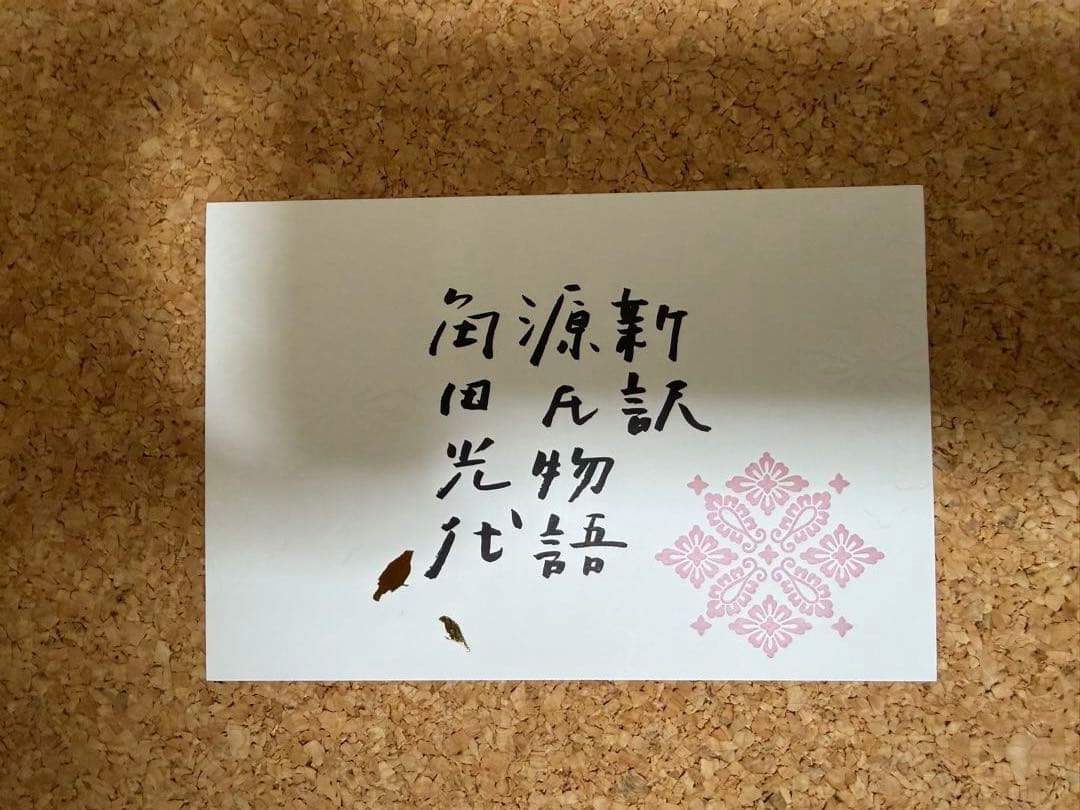 新訳
源氏物語
角田光代